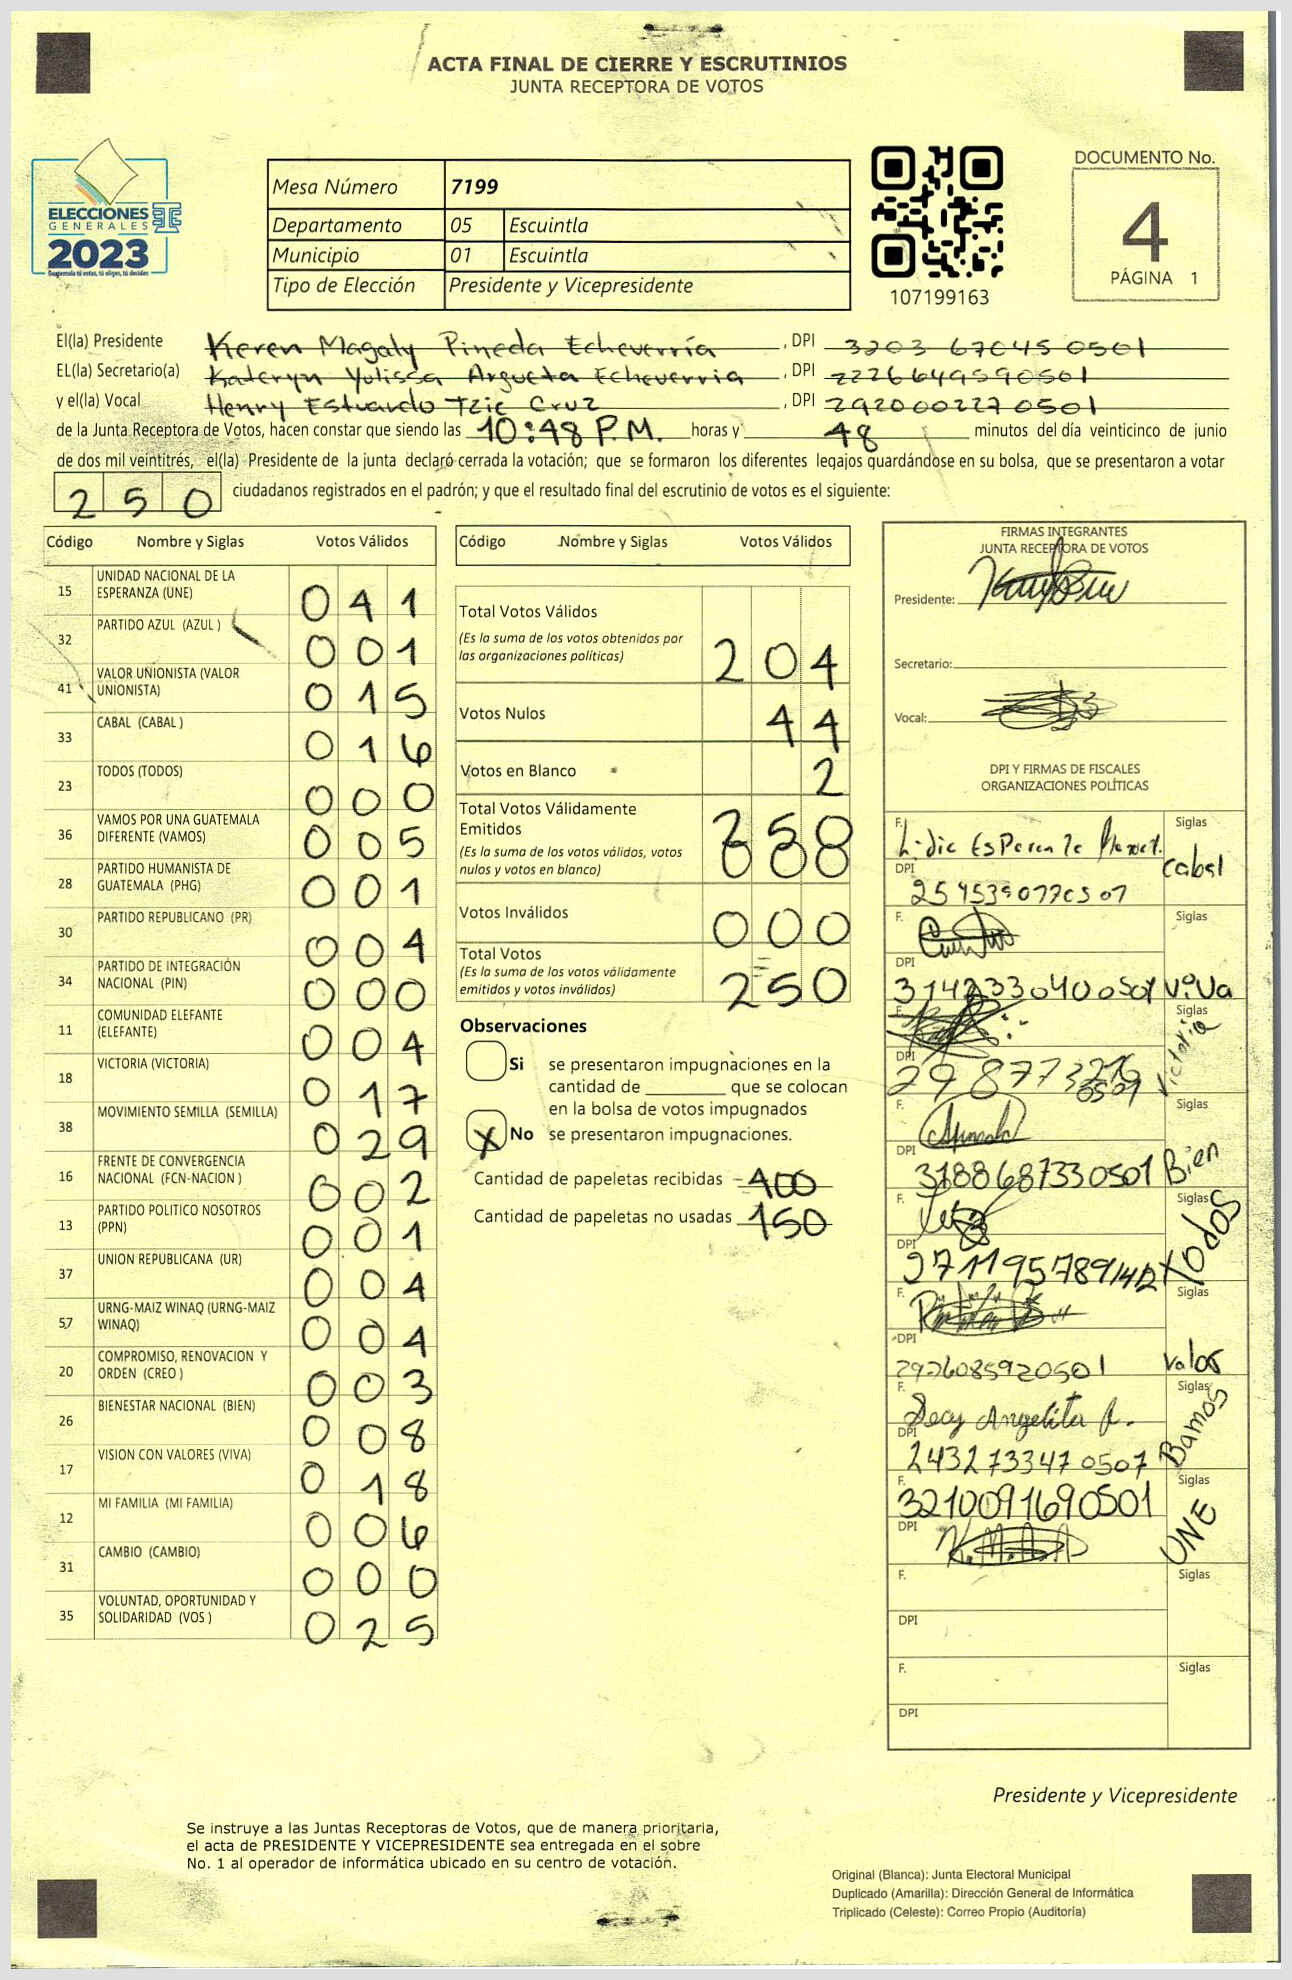 ACTA FINAL DE CIERRE Y ESCRUTINIOS
JUNTA RECEPTORA DE VOTOS
ELECCIONES
GENERALES
2023
Guatemala tú votas, tú eliges, tú decides
Mesa Número 7199
Departamento 05 Escuintla
Municipio 01 Escuintla
Tipo de Elección Presidente y Vicepresidente
107199163
DOCUMENTO No.
4
PÁGINA 1
El(la) Presidente Keren Magaly Pineda Echeverría , DPI 3203 67045 0501
EL(la) Secretario(a) Kateryn Yulissa Argueta Echeverria , DPI 2226649590501
y el(la) Vocal Henry Estuardo Tzic Cruz , DPI 292000227 0501
de la Junta Receptora de Votos, hacen constar que siendo las 10:48 P.M. horas y 48 minutos del día veinticinco de junio
de dos mil veintitrés, el(la) Presidente de la junta declaró cerrada la votación; que se formaron los diferentes legajos guardándose en su bolsa, que se presentaron a votar
250 ciudadanos registrados en el padrón; y que el resultado final del escrutinio de votos es el siguiente:
Código Nombre y Siglas Votos Válidos
15 UNIDAD NACIONAL DE LA ESPERANZA (UNE) 041
32 PARTIDO AZUL (AZUL ) 001
41 VALOR UNIONISTA (VALOR UNIONISTA) 015
33 CABAL (CABAL ) 016
23 TODOS (TODOS) 000
36 VAMOS POR UNA GUATEMALA DIFERENTE (VAMOS) 005
28 PARTIDO HUMANISTA DE GUATEMALA (PHG) 001
30 PARTIDO REPUBLICANO (PR) 004
34 PARTIDO DE INTEGRACIÓN NACIONAL (PIN) 000
11 COMUNIDAD ELEFANTE (ELEFANTE) 004
18 VICTORIA (VICTORIA) 017
38 MOVIMIENTO SEMILLA (SEMILLA) 029
16 FRENTE DE CONVERGENCIA NACIONAL (FCN-NACION ) 002
13 PARTIDO POLITICO NOSOTROS (PPN) 001
37 UNION REPUBLICANA (UR) 004
57 URNG-MAIZ WINAQ (URNG-MAIZ WINAQ) 004
20 COMPROMISO, RENOVACION Y ORDEN (CREO ) 003
26 BIENESTAR NACIONAL (BIEN) 008
17 VISION CON VALORES (VIVA) 018
12 MI FAMILIA (MI FAMILIA) 006
31 CAMBIO (CAMBIO) 000
35 VOLUNTAD, OPORTUNIDAD Y SOLIDARIDAD (VOS ) 025
Código Nombre y Siglas Votos Válidos
Total Votos Válidos 204
(Es la suma de los votos obtenidos por
las organizaciones políticas)
Votos Nulos 44
Votos en Blanco 2
Total Votos Válidamente
Emitidos
(Es la suma de los votos válidos, votos
nulos y votos en blanco)
Votos Inválidos 000
Total Votos 250
(Es la suma de los votos válidamente
emitidos y votos inválidos)
Observaciones
Si se presentaron impugnaciones en la
cantidad de ________ que se colocan
en la bolsa de votos impugnados
X No se presentaron impugnaciones.
Cantidad de papeletas recibidas 400
Cantidad de papeletas no usadas 150
FIRMAS INTEGRANTES
JUNTA RECEPTORA DE VOTOS
Presidente:
Secretario:
Vocal:
DPI Y FIRMAS DE FISCALES
ORGANIZACIONES POLÍTICAS
F. Siglas
Cabal
DPI
F. Siglas
DPI
Viva
F. Siglas
Victoria
DPI
F. Siglas
DPI 3188687330501 Bien
F. Siglas
DPI
Todos
F. Siglas
DPI 2926085920501 Valor
F. Siglas
DPI 2432733470507 Bamos
F. 3210091690501 Siglas
DPI
UNE
F. Siglas
DPI
F. Siglas
DPI
Presidente y Vicepresidente
Se instruye a las Juntas Receptoras de Votos, que de manera prioritaria,
el acta de PRESIDENTE Y VICEPRESIDENTE sea entregada en el sobre
No. 1 al operador de informática ubicado en su centro de votación.
Original (Blanca): Junta Electoral Municipal
Duplicado (Amarilla): Dirección General de Informática
Triplicado (Celeste): Correo Propio (Auditoría)